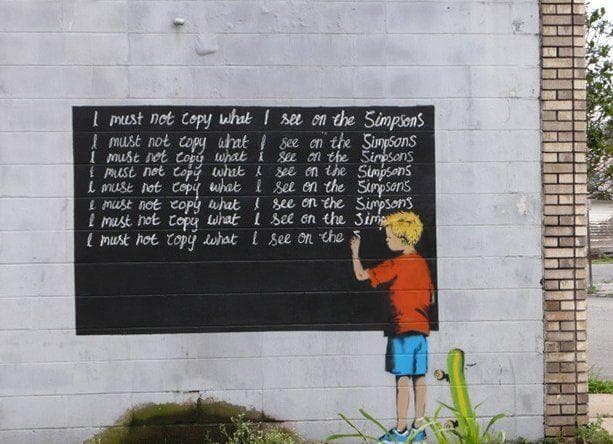 I must not copy what I see on the Simpsons
I must not copy what I see on the Simpsons
I must not copy what I see on the Simpsons
I must not copy what I see on the Simpsons
I must not copy what I see on the Simpsons
I must not copy what I see on the Simpsons
I must not copy what I see on the Simpsons
I must not copy what I see on the S